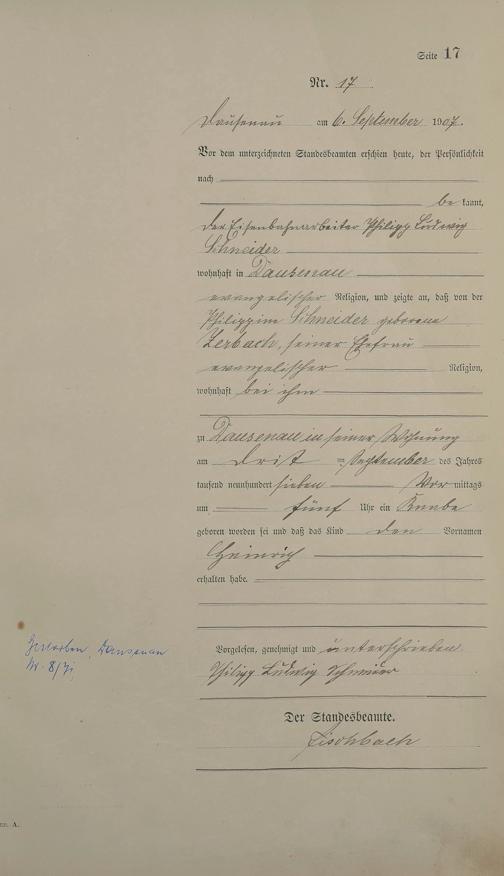 Seite 17
Nr. 17
Dausenau am 6. September 1907.
Vor dem unterzeichneten Standesbeamten erschien heute, der Persönlichkeit
nach
be kannt,
der Eisenbahnarbeiter Philipp Ludwig
Schneider
wohnhaft in Dausenau
evangelischer Religion, und zeigte an, daß von der
Philippine Schneider geborene
Zerbach, seiner Ehefrau
evangelischer Religion,
wohnhaft bei ihm
zu Dausenau in seiner Wohnung
am September des Jahres
tausend neunhundert sieben Vor mittags
um fünf Uhr ein Knabe
geboren worden sei und daß das Kind den Vornamen
Heinrich
erhalten habe.
Vorgelesen, genehmigt und unterschrieben
Philipp Ludwig Schneider
Der Standesbeamte.
Fischbach
Gestorben, Dausenau
Nr. 8/71
A.